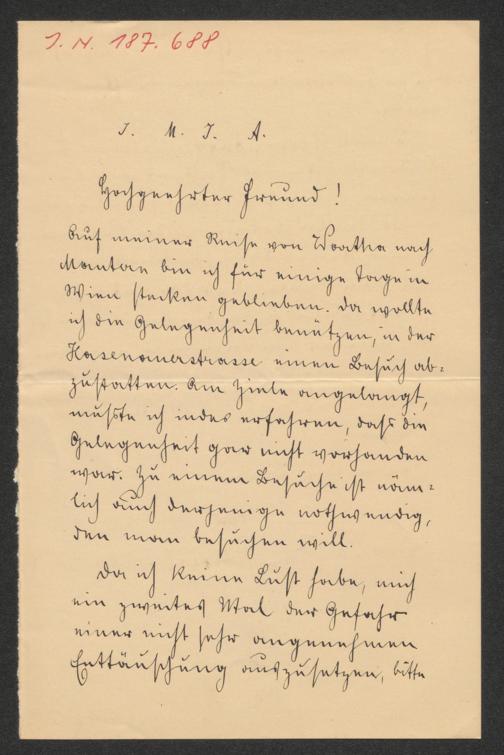 J. N. 187.688
J. M. J. A.
Hochgeehrter Freund!
Auf meiner Reise von            nach
           bin ich für einige Tage in
Wien stecken geblieben. Da wollte
ich die Gelegenheit benützen, in der
Hasenauerstrasse einen Besuch ab=
zustatten. Am Ziele angelangt,
mußte ich indes erfahren, daß die
Gelegenheit gar nicht vorhanden
war. Zu einem Besuche ist näm=
lich auch derjenige nothwendig,
den man besuchen will.
Da ich keine Lust habe, mich
ein zweites Mal der Gefahr
einer nicht sehr angenehmen
Enttäuschung auszusetzen, bitte